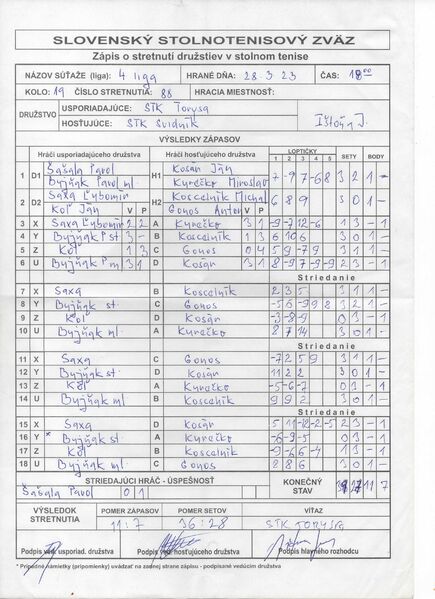 SLOVENSKÝ STOLNOTENISOVÝ ZVÄZ
Zápis o stretnutí družstiev v stolnom tenise
NÁZOV SÚŤAŽE (liga): 4 liga HRANÉ DŇA: 28.3 23 ČAS: 18 00
KOLO: 19 ČÍSLO STRETNUTIA: 88 HRACIA MIESTNOSŤ:
DRUŽSTVO
USPORIADAJÚCE: STK Torysa
HOSŤUJÚCE: STK Svidník Ištoňa J.
VÝSLEDKY ZÁPASOV
Hráči usporiadajúceho družstva Hráči hosťujúceho družstva LOPTIČKY SETY BODY
1 2 3 4 5
1 D1 Šašala Pavol H1 Kosár Ján 7 -9 7 -6 8 3 2 1 -
Byjňak Pavol ml Kurečko Miroslav
2 D2 Saxa Ľubomír H2 Koscelník Michal 6 8 9 3 0 1 -
Koľ Ján V P Gonos Anton V P
3 X Saxa Ľubomír 2 2 A Kurečko 3 1 -9 -7 12 -6 1 3 - 1
4 Y Byjňak P st 3 - B Koscelník 1 3 6 16 6 3 0 1 -
5 Z Koľ 1 3 C Gonos 0 4 5 9 -7 9 3 1 1 -
6 U Byjňak P ml 3 1 D Kosár 3 1 8 -9 7 -9 -9 2 3 - 1
Striedanie
7 X Saxa B Koscelník 2 3 5 3 1 1 -
8 Y Byjňak st. C Gonos -5 6 -9 9 8 3 2 1 -
9 Z Koľ D Kosár -3 -8 9 0 3 - 1
10 U Byjňak ml. A Kurečko 8 7 14 3 0 1 -
Striedanie
11 X Saxa C Gonos -7 2 5 9 3 1 1 -
12 Y Byjňak st. D Kosár 11 2 2 3 0 1 -
13 Z Koľ A Kurečko -5 -6 -7 0 3 - 1
14 U Byjňak ml B Koscelník 9 9 2 3 0 1 -
Striedanie
15 X Saxa D Kosár 5 11 -12 -2 -5 2 3 - 1
16 Y Byjňak st. A Kurečko -6 -9 -5 0 3 - 1
17 Z Koľ B Koscelník -9 -6 6 -4 1 3 - 1
18 U Byjňak ml. C Gonos 8 8 6 3 0 1 -
STRIEDAJÚCI HRÁČ - ÚSPEŠNOSŤ KONEČNÝ STAV 11 7
Šašala Pavol 0 1
VÝSLEDOK STRETNUTIA POMER ZÁPASOV POMER SETOV VÍŤAZ
11:7 36:28 STK TORYSA
Podpis ved. usporiad. družstva Podpis ved. hosťujúceho družstva Podpis hlavného rozhodcu
* Prípadné námietky (pripomienky) uvádzať na zadnej strane zápisu - podpísané vedúcim družstva